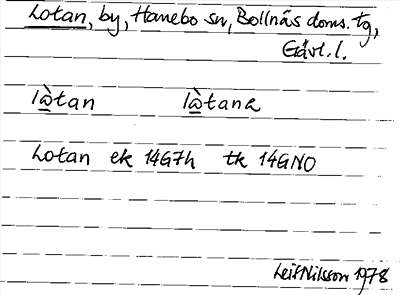 Lotan, by, Hanebo sn, Bollnäs doms. tg,
Gävl. l.
làtan làtana
Lotan ek 14G7h tk 14GNO
Leif Nilsson 1978